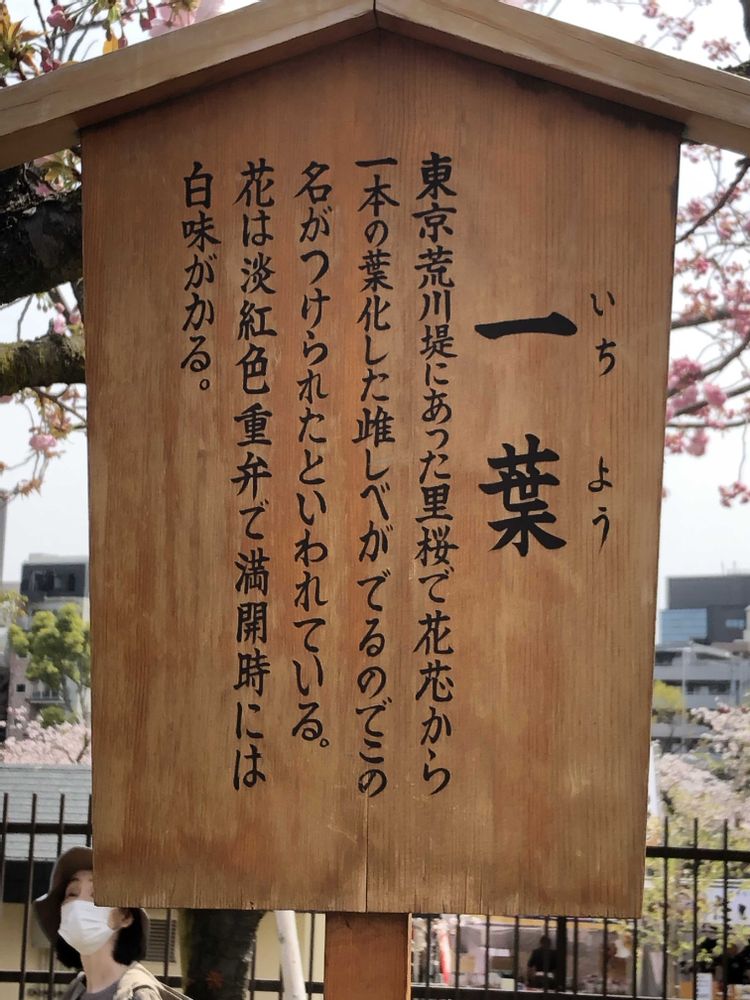 いちよう
一葉
東京荒川堤にあった里桜で花芯から
一本の葉化した雌しべがでるのでこの
名がつけられたといわれている。
花は淡紅色重弁で満開時には
白味がかる。